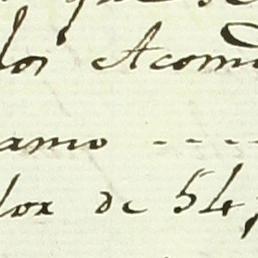 los Acom
amo ----
lor de 54,